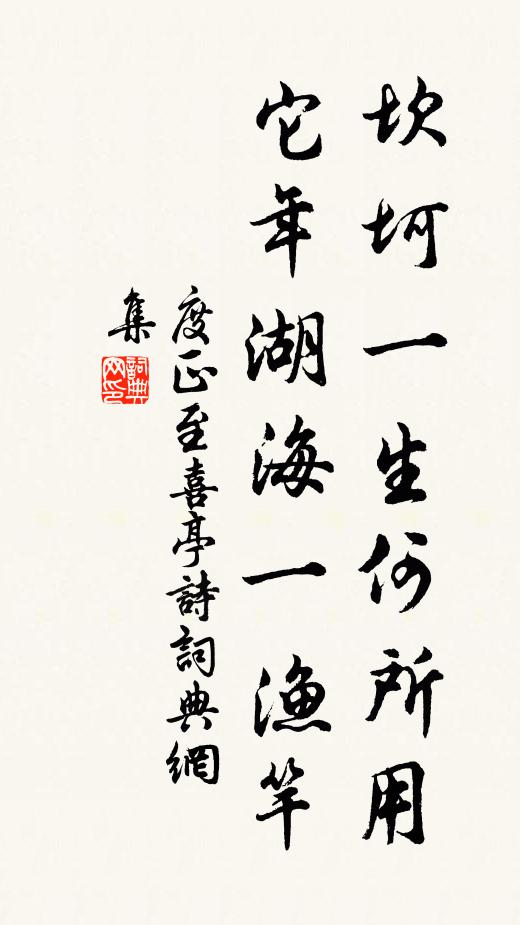 坎坷一生何所用
它年湖海一漁竿
度正至喜亭詩詞典網
集
詞典网印